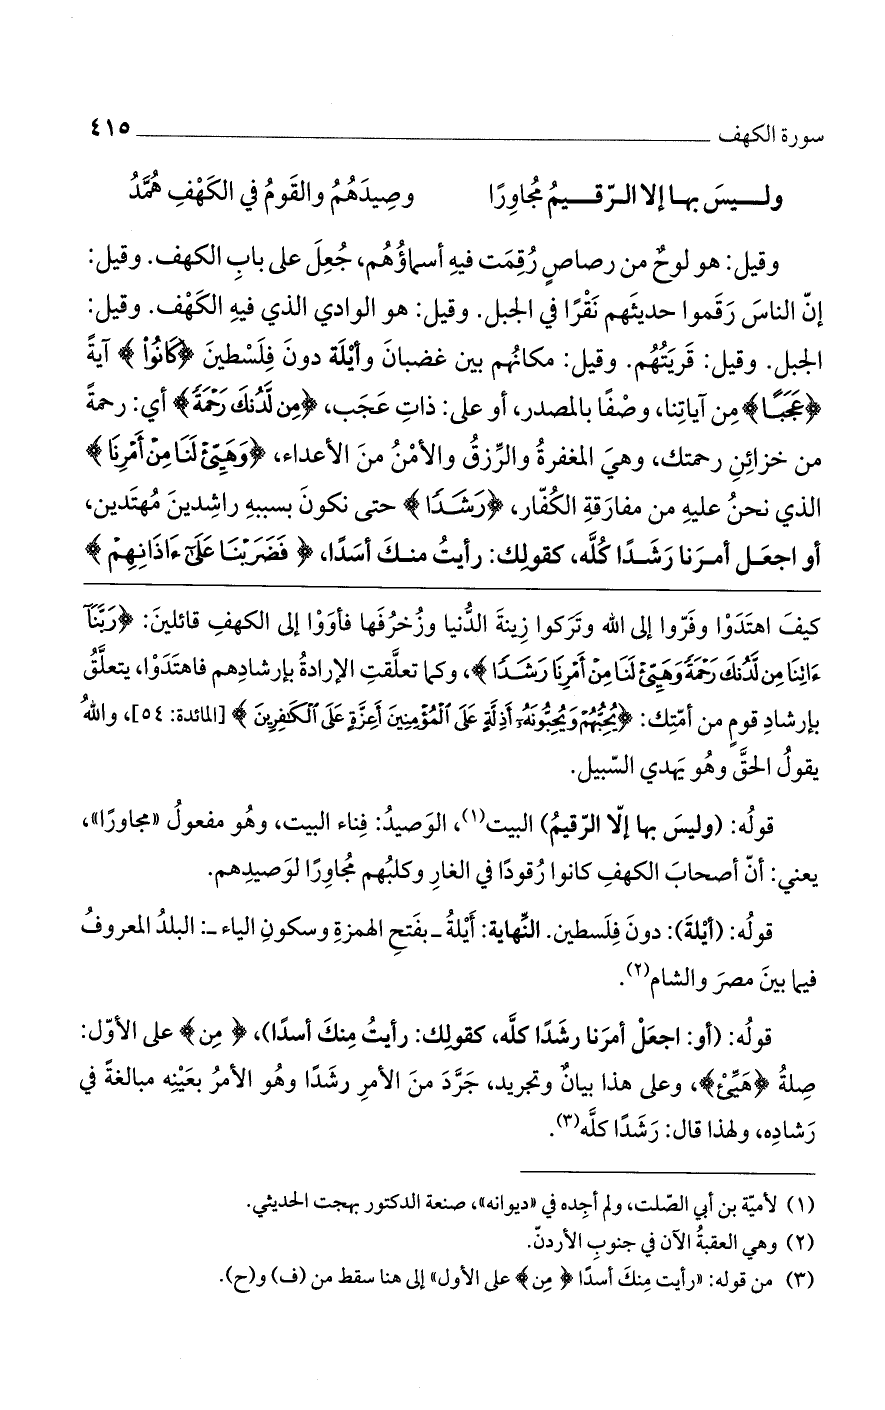 سورة الكهف ٤١٥
ولـــيسَ بهـا إلا الـرّقـــيمُ مُجاوِرًا وصِيدَهُمُ والقَومُ في الكَهْفِ هُمَّدُ
وقيل: هو لوحٌ من رصاصٍ رُقِمَت فيهِ أسماؤُهُم، جُعِلَ على بابِ الكهف. وقيل:
إنّ الناسَ رَقَموا حديثَهم نَقْرًا في الجبل. وقيل: هو الوادي الذي فيهِ الكَهْف. وقيل:
الجبل. وقيل: قَريَتُهُم. وقيل: مكانُهم بين غضبانَ وأَيْلَة دونَ فِلَسْطينَ ﴿كَانُوا۟﴾ آيةً
﴿عَجَبًا﴾ مِن آياتِنا، وصْفًا بالمصدر، أو على: ذاتِ عَجَب، ﴿مِن لَّدُنكَ رَحْمَةً﴾ أي: رحمةً
من خزائنِ رحمتك، وهيَ المغفرةُ والرِّزقُ والأمْنُ منَ الأعداء، ﴿وَهَيِّئْ لَنَا مِنْ أَمْرِنَا﴾
الذي نحنُ عليهِ من مفارَقةِ الكُفّار، ﴿رَشَدًا﴾ حتى نكونَ بسببهِ راشِدينَ مُهتَدين،
أو اجعَـل أمـرَنا رَشَـدًا كُلَّه، كقولِك: رأيتُ منـكَ أسَدًا، ﴿فَضَرَبْنَا عَلَىٰٓ ءَاذَانِهِمْ﴾
كيفَ اهتَدَوْا وفَرّوا إلى الله وتَرَكوا زِينةَ الدُّنيا وزُخرُفَها فأوَوْا إلى الكهفِ قائلينَ: ﴿رَبَّنَآ
ءَاتِنَا مِن لَّدُنكَ رَحْمَةً وَهَيِّئْ لَنَا مِنْ أَمْرِنَا رَشَدًا﴾، وكما تعلَّقتِ الإرادةُ بإرشادِهم فاهتَدَوْا، يتعلَّقُ
بإرشادِ قومٍ من أمّتِك: ﴿يُحِبُّهُمْ وَيُحِبُّونَهُۥٓ أَذِلَّةٍ عَلَى ٱلْمُؤْمِنِينَ أَعِزَّةٍ عَلَى ٱلْكَٰفِرِينَ﴾ [المائدة: ٥٤]، واللهُ
يقولُ الحقَّ وهُو يَهدي السّبيل.
قولُه: (وليسَ بها إلّا الرّقيمُ) البيت(١)، الوَصيدُ: فِناء البيت، وهُو مفعولُ «مجاورًا»،
يعني: أنّ أصحابَ الكهفِ كانوا رُقودًا في الغارِ وكلبُهم مُجاوِرًا لوَصيدِهم.
قولُه: (أيْلةَ): دونَ فِلَسطين. النِّهاية: أَيْلةُ ـ بفَتحِ الهمزةِ وسكونِ الياء ـ: البلدُ المعروفُ
فيما بينَ مصرَ والشام(٢).
قولُه: (أو: اجعَلْ أمرَنا رشَدًا كله، كقولِك: رأيتُ مِنكَ أسدًا)، ﴿مِن﴾ على الأوّل:
صِلةُ ﴿هَيِّئْ﴾، وعلى هذا بيانٌ وتجريد، جَرَّدَ منَ الأمرِ رشَدًا وهُو الأمرُ بعَيْنِه مبالغةً في
رَشادِه، ولهذا قال: رَشَدًا كلَّه(٣).
(١) لأميّة بن أبي الصّلت، ولم أجِده في «ديوانه»، صنعة الدكتور بهجت الحديثي.
(٢) وهي العقبةُ الآن في جنوبِ الأردنّ.
(٣) من قوله: «رأيت مِنكَ أسدًا ﴿مِن﴾ على الأول» إلى هنا سقط من (ف) و(ح).